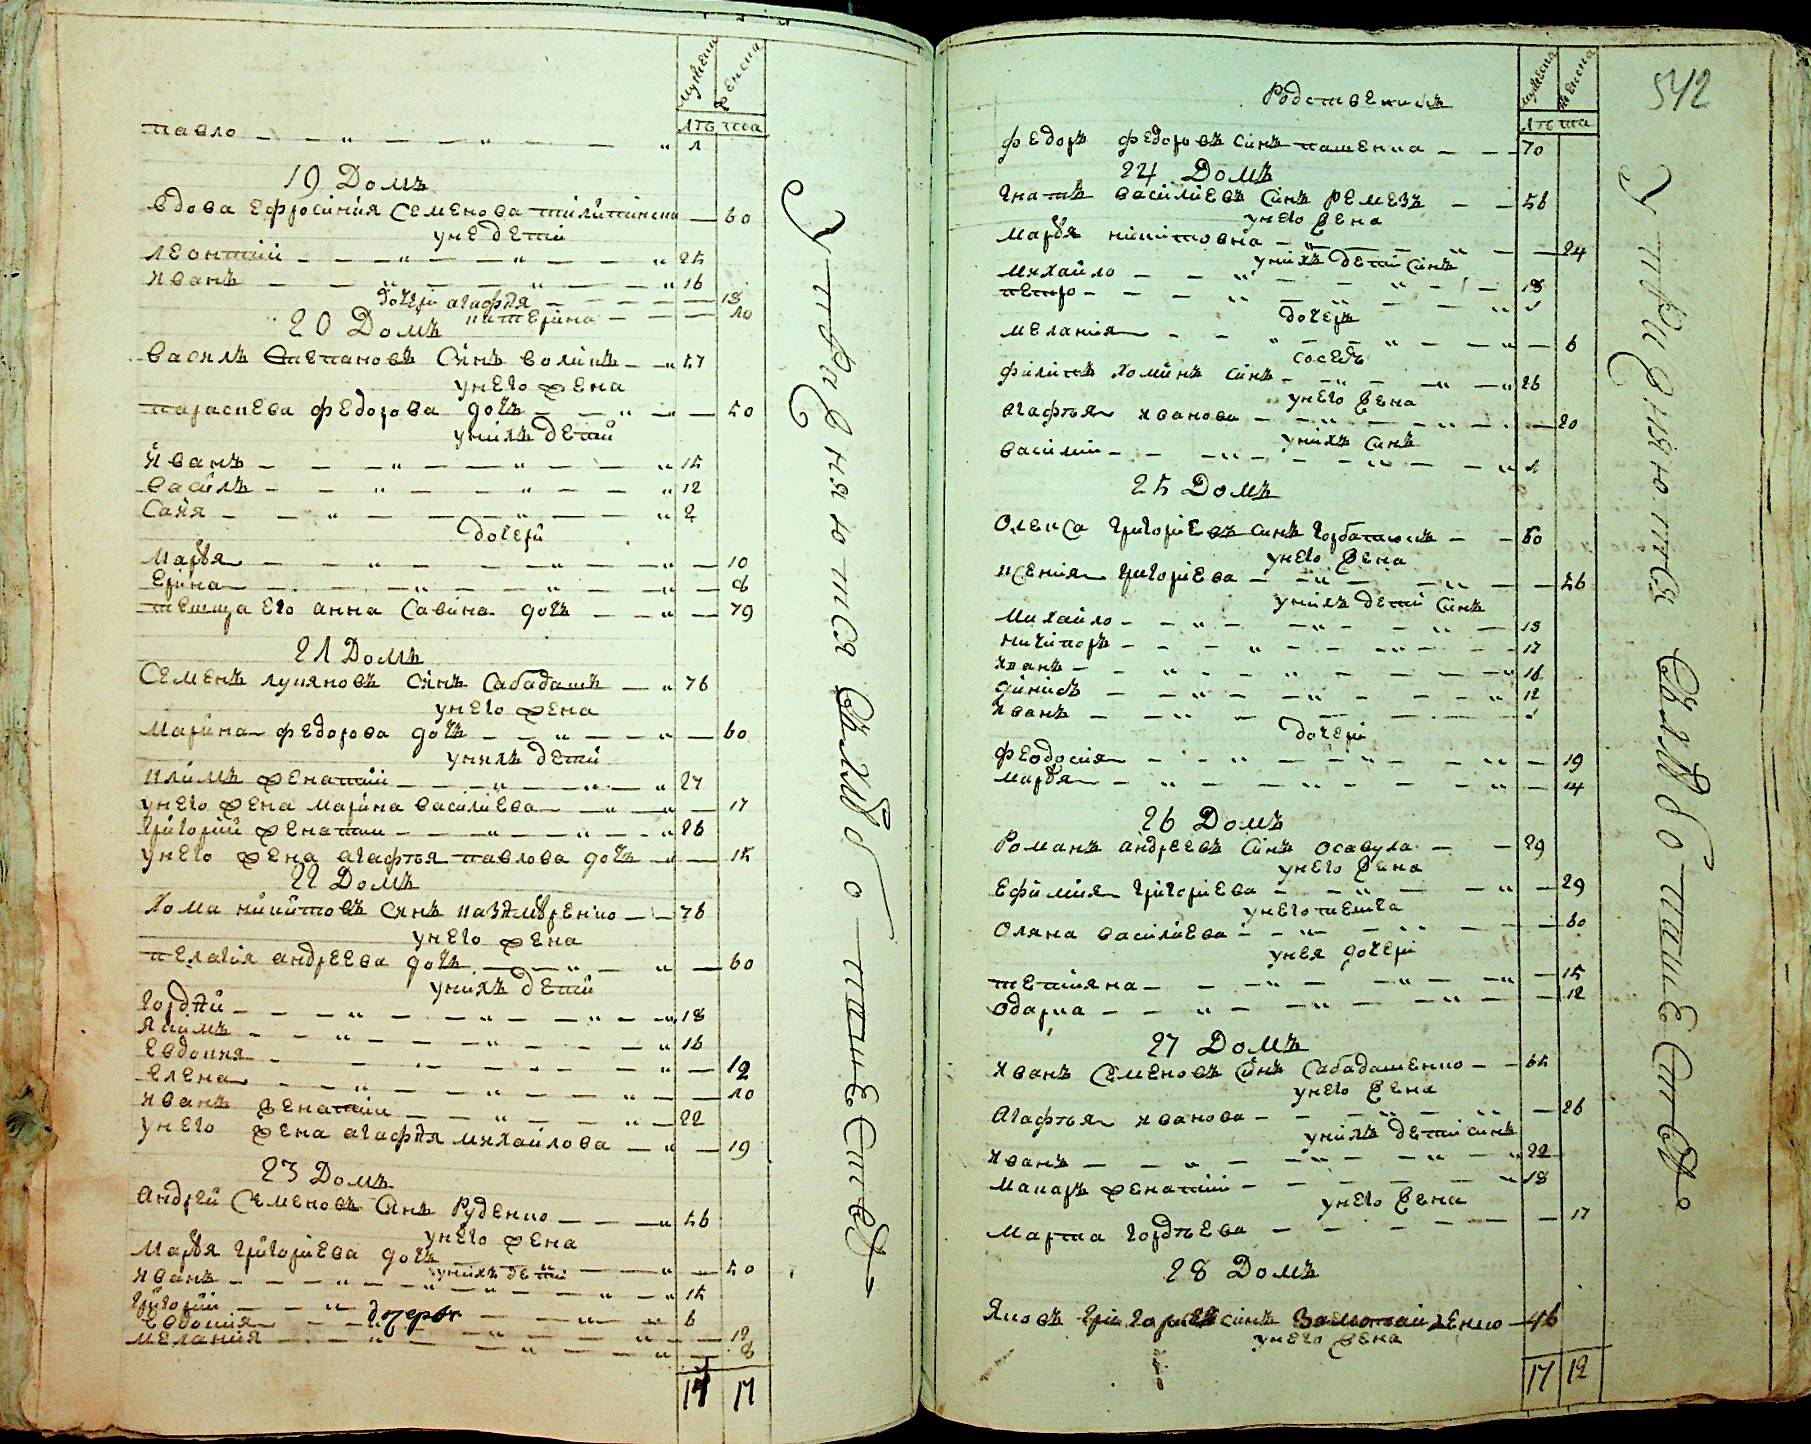 мужеска
женска
лѣта
павло 1
19 Домъ
вдова Ефросинія Семенова 60
унее дети
леонтий 25
Иванъ 16
дочери агафія 18
катерина 10
20 Домъ
Василь Степановъ Синъ волинъ 57
унего жена
параскева федорова дочъ 50
унихъ дети
Иванъ 15
василь 12
Сава 2
дочери
Марья 10
Ерина 8
тещща Его анна Савина дочъ 79
21 Домъ
Семенъ лукяновъ Синъ Сабадашъ 76
унего жена
Марина федорова дочъ 60
унихъ дети
климъ женатий 27
унего жена марина василиева 17
григорий женатий 26
унего жена агафтя павлова дочъ 15
22 Домъ
Хома никитовъ Синъ 76
унего жена
пелагія андреева дочъ 60
унихъ дети
гордѣй 18
Якимъ 16
Евдокия 12
Елена 10
Иванъ женатий 22
унего жена агафия михайлова 19
23 Домъ
Андрей Семеновъ Синъ Руденко 56
унего жена
Марья григориева дочъ 50
унихъ дети
Иванъ 15
григорий 6
дочери
Евдокия 12
мелания 8
17
Утвержаюти Сѣмъ
542
мужеска
женска
лѣта
Родственикъ
федоръ федоровъ синъ пашенка 70
24 Домъ
гнатъ василиевъ Синъ Ремезъ 56
унего жена
Марья никитовна 24
унихъ дети синъ
михайло 18
петро 1
дочеръ
мелания 6
соседъ
филипъ хоминъ синъ 26
унего жена
Агафтья иванова 20
унихъ синъ
василий 1
25 Домъ
Олекса григориевъ синъ горбатюкъ 60
унего жена
ксения григориева 56
унихъ дети синъ
Михайло 18
ничипоръ 17
Иванъ 16
динисъ 12
Иванъ
дочери
Феодосия 19
марья 14
26 Домъ
Романъ андреевъ Синъ осавула 29
унего жена
Ефимия григориева 29
унего тешча
Оляна василиева 60
унея дочери
тетияна 15
одарка 12
27 Домъ
Иванъ Семеновъ Синъ Сабадашенко 65
унего жена
Агафтья иванова 26
унихъ дети синъ
Иванъ 22
макаръ женатий 18
унего жена
Марта гордѣева 17
28 Домъ
Яковъ григориевъ синъ 46
унего жена
17 12